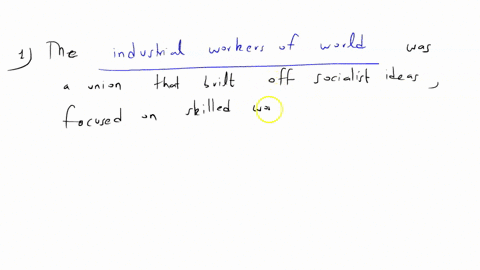 1) The industrial workers of world was
a union that built off socialist ideas,
focused on skilled wo